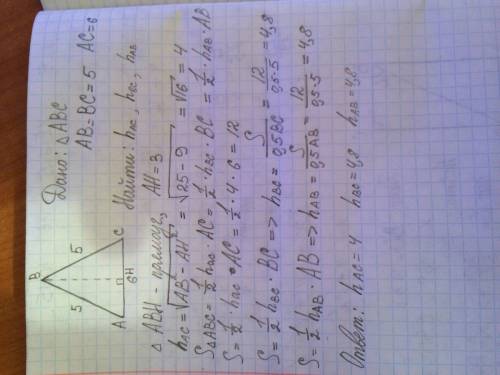 Дано: △ABC
AB=BC=5 AC=6
Найти: hAC, hBC, hAB
B
5
5
A
6H
C
△ABH - прямоуг, AH=3
hAC = √AB² - AH² = √25 - 9 = √16 = 4
S△ABC = 1/2 hAC · AC = 1/2 · hBC · BC = 1/2 · hAB · AB
S = 1/2 · hAC · AC = 1/2 · 4 · 6 = 12
S = 1/2 hBC · BC => hBC = S/0,5BC = 12/0,5·5 = 4,8
S = 1/2 hAB · AB => hAB = S/0,5AB = 12/0,5·5 = 4,8
Ответ: hAC = 4 hBC = 4,8 hAB = 4,8